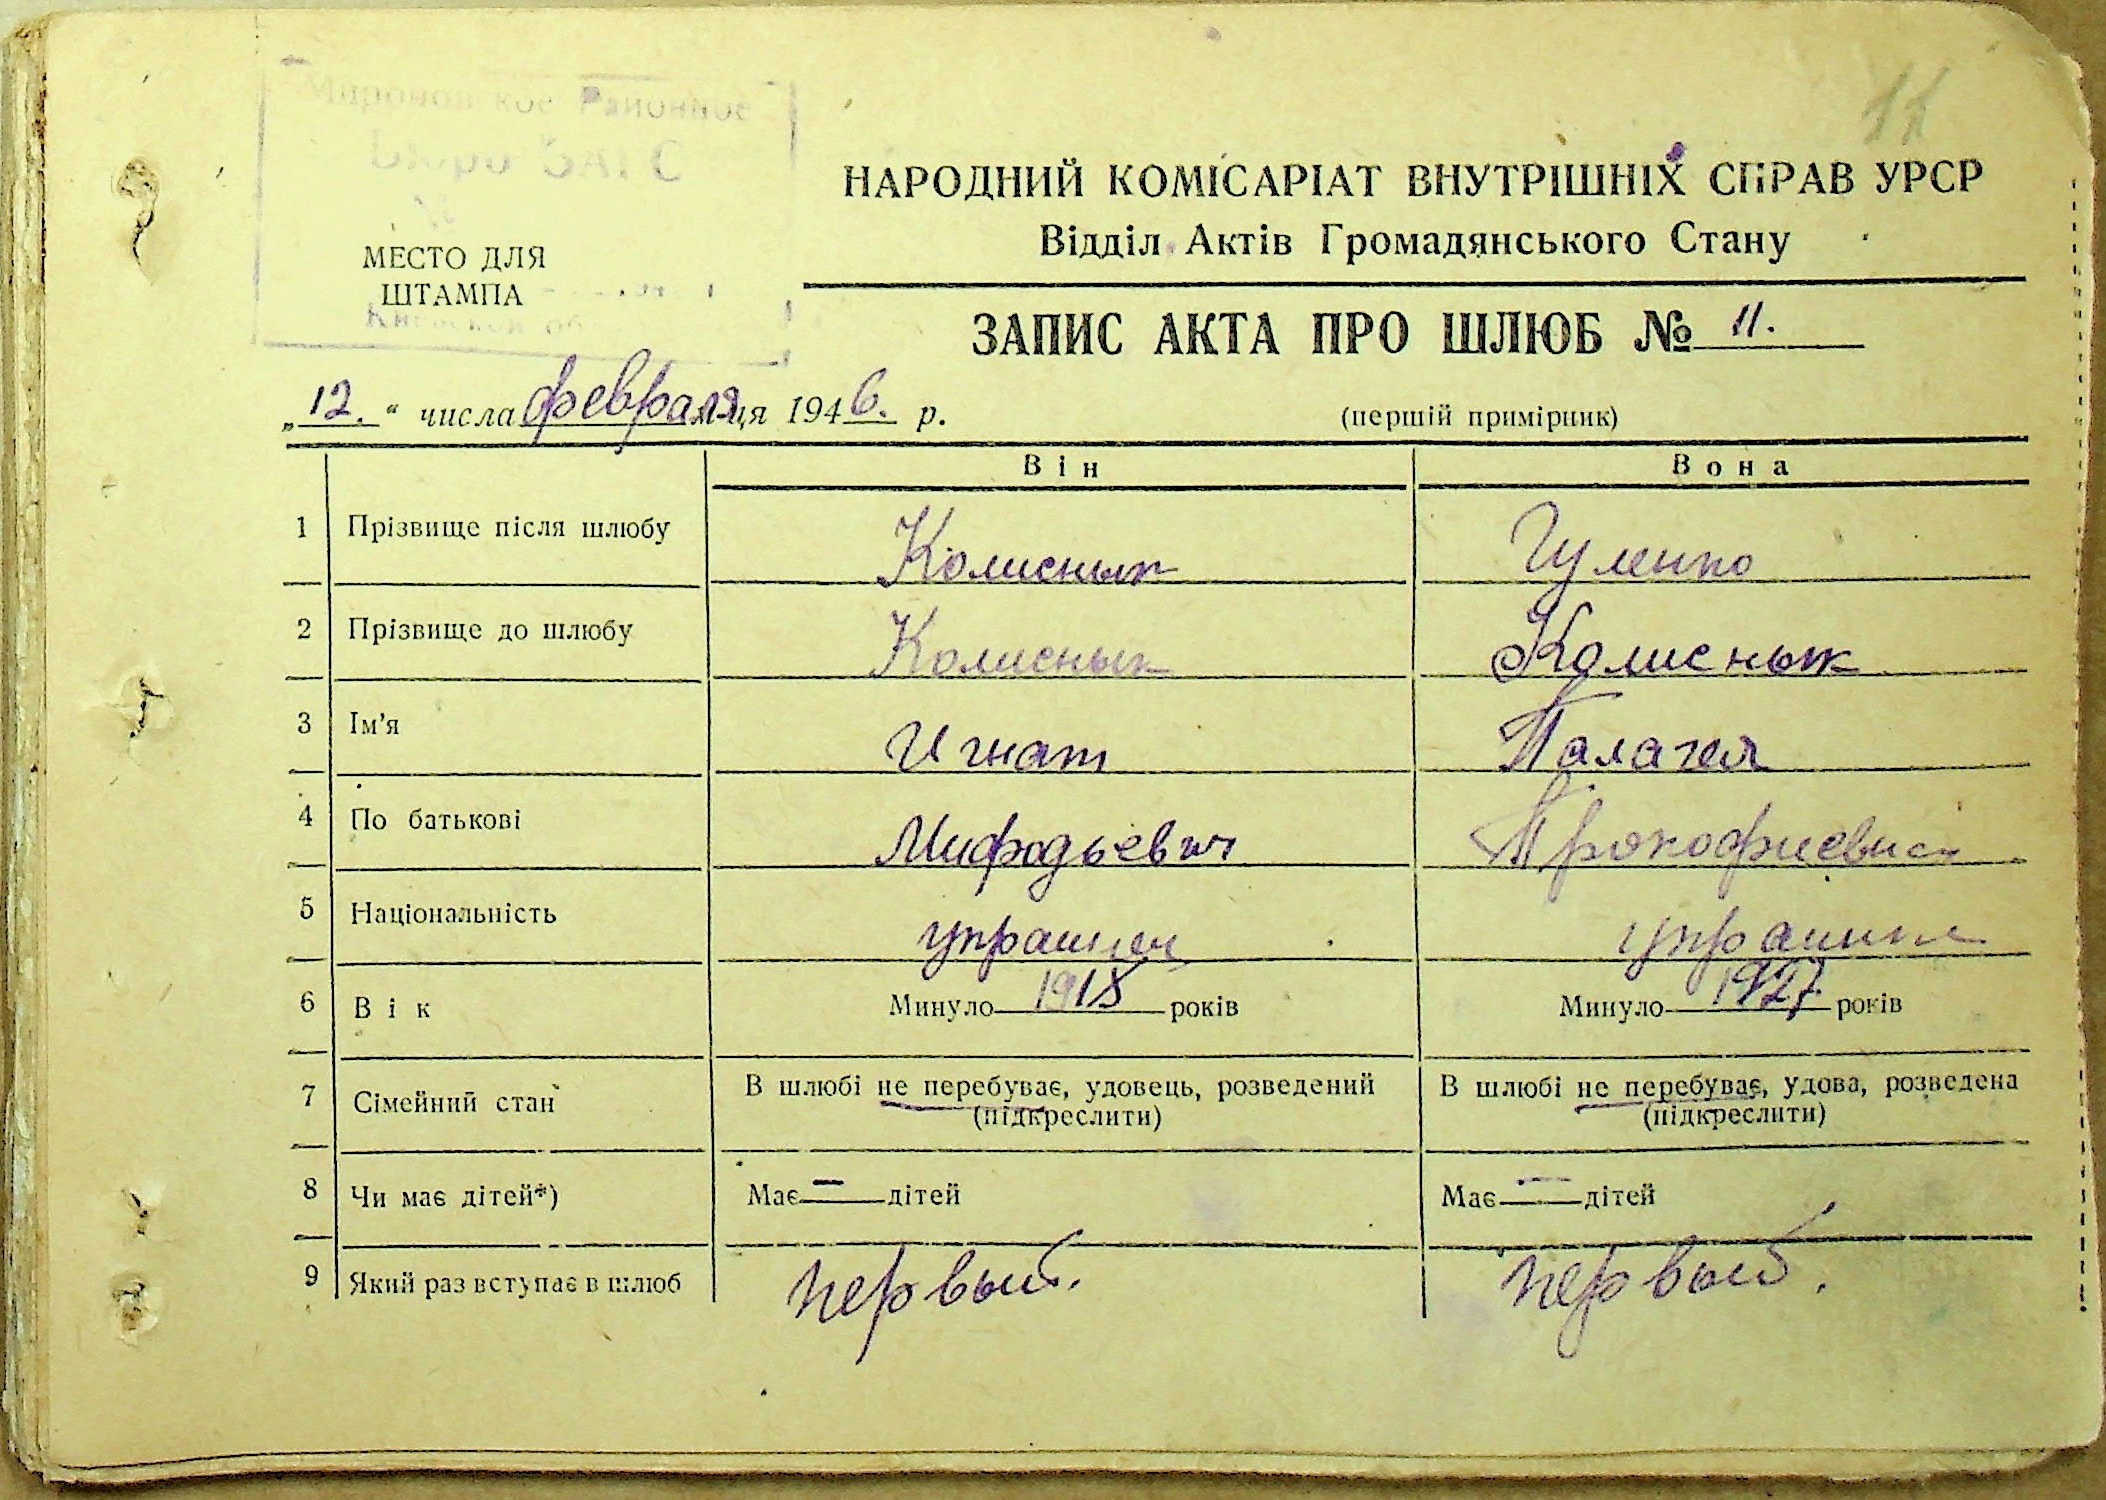 11
Районное
НАРОДНИЙ КОМІСАРІАТ ВНУТРІШНІХ СПРАВ УРСР
Відділ Актів Громадянського Стану
МЕСТО ДЛЯ
ШТАМПА
ЗАПИС АКТА ПРО ШЛЮБ № 11.
„12." числа февраля м-ця 1946. р.
(перший примірник)
Він Вона
1 Прізвище після шлюбу Колиснык Гуленко
2 Прізвище до шлюбу Колиснык Колиснык
3 Ім'я Игнат Палагея
4 По батькові Мифодьевич Прокофиевна
5 Національність украинец украинка
6 Вік Минуло 1918 років Минуло 1927 років
7 Сімейний стан В шлюбі не перебуває, удовець, розведений В шлюбі не перебуває, удова, розведена
(підкреслити) (підкреслити)
8 Чи має дітей*) Має — дітей Має — дітей
9 Який раз вступає в шлюб первый. первый.